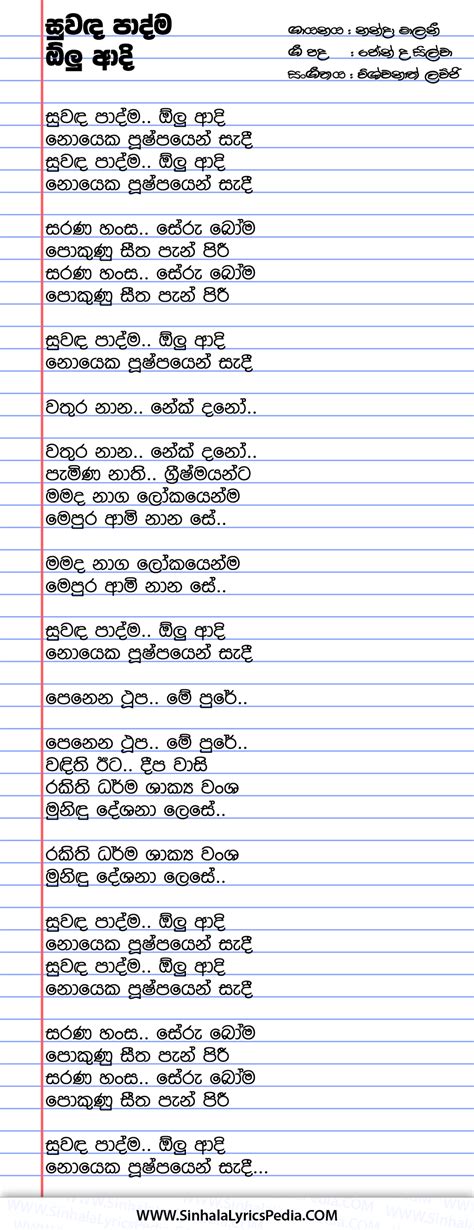 සුවඳ පාද්ම
ඕලු ආදි
ගායනය : නන්දා මාලනී
ගී පද : ජෝන් ද සිල්වා
සංගීතය : විශ්වනාත් ලව්ජි
සුවඳ පාද්ම.. ඕලු ආදි
නොයෙක පූෂ්පයෙන් සැදී
සුවඳ පාද්ම.. ඕලු ආදි
නොයෙක පූෂ්පයෙන් සැදී
සරණ හංස.. සේරු බෝම
පොකුණු සීත පැන් පිරී
සරණ හංස.. සේරු බෝම
පොකුණු සීත පැන් පිරී
සුවඳ පාද්ම.. ඕලු ආදි
නොයෙක පූෂ්පයෙන් සැදී
වතුර නාන.. නේක් දනෝ..
වතුර නාන.. නේක් දනෝ..
පැමිණ නාති.. ග්‍රීෂ්මයන්ට
මමද නාග ලෝකයෙන්ම
මෙපුර ආමි නාන සේ..
මමද නාග ලෝකයෙන්ම
මෙපුර ආමි නාන සේ..
සුවඳ පාද්ම.. ඕලු ආදි
නොයෙක පූෂ්පයෙන් සැදී
පෙනෙන ථූප.. මේ පුරේ..
පෙනෙන ථූප.. මේ පුරේ..
වඳිති ඊට.. දීප වාසි
රකිති ධර්ම ශාක්‍ය වංශ
මුනිඳු දේශනා ලෙසේ..
රකිති ධර්ම ශාක්‍ය වංශ
මුනිඳු දේශනා ලෙසේ..
සුවඳ පාද්ම.. ඕලු ආදි
නොයෙක පූෂ්පයෙන් සැදී
සුවඳ පාද්ම.. ඕලු ආදි
නොයෙක පූෂ්පයෙන් සැදී
සරණ හංස.. සේරු බෝම
පොකුණු සීත පැන් පිරී
සරණ හංස.. සේරු බෝම
පොකුණු සීත පැන් පිරී
සුවඳ පාද්ම.. ඕලු ආදි
නොයෙක පූෂ්පයෙන් සැදී...
WWW.SinhalaLyricsPedia.COM